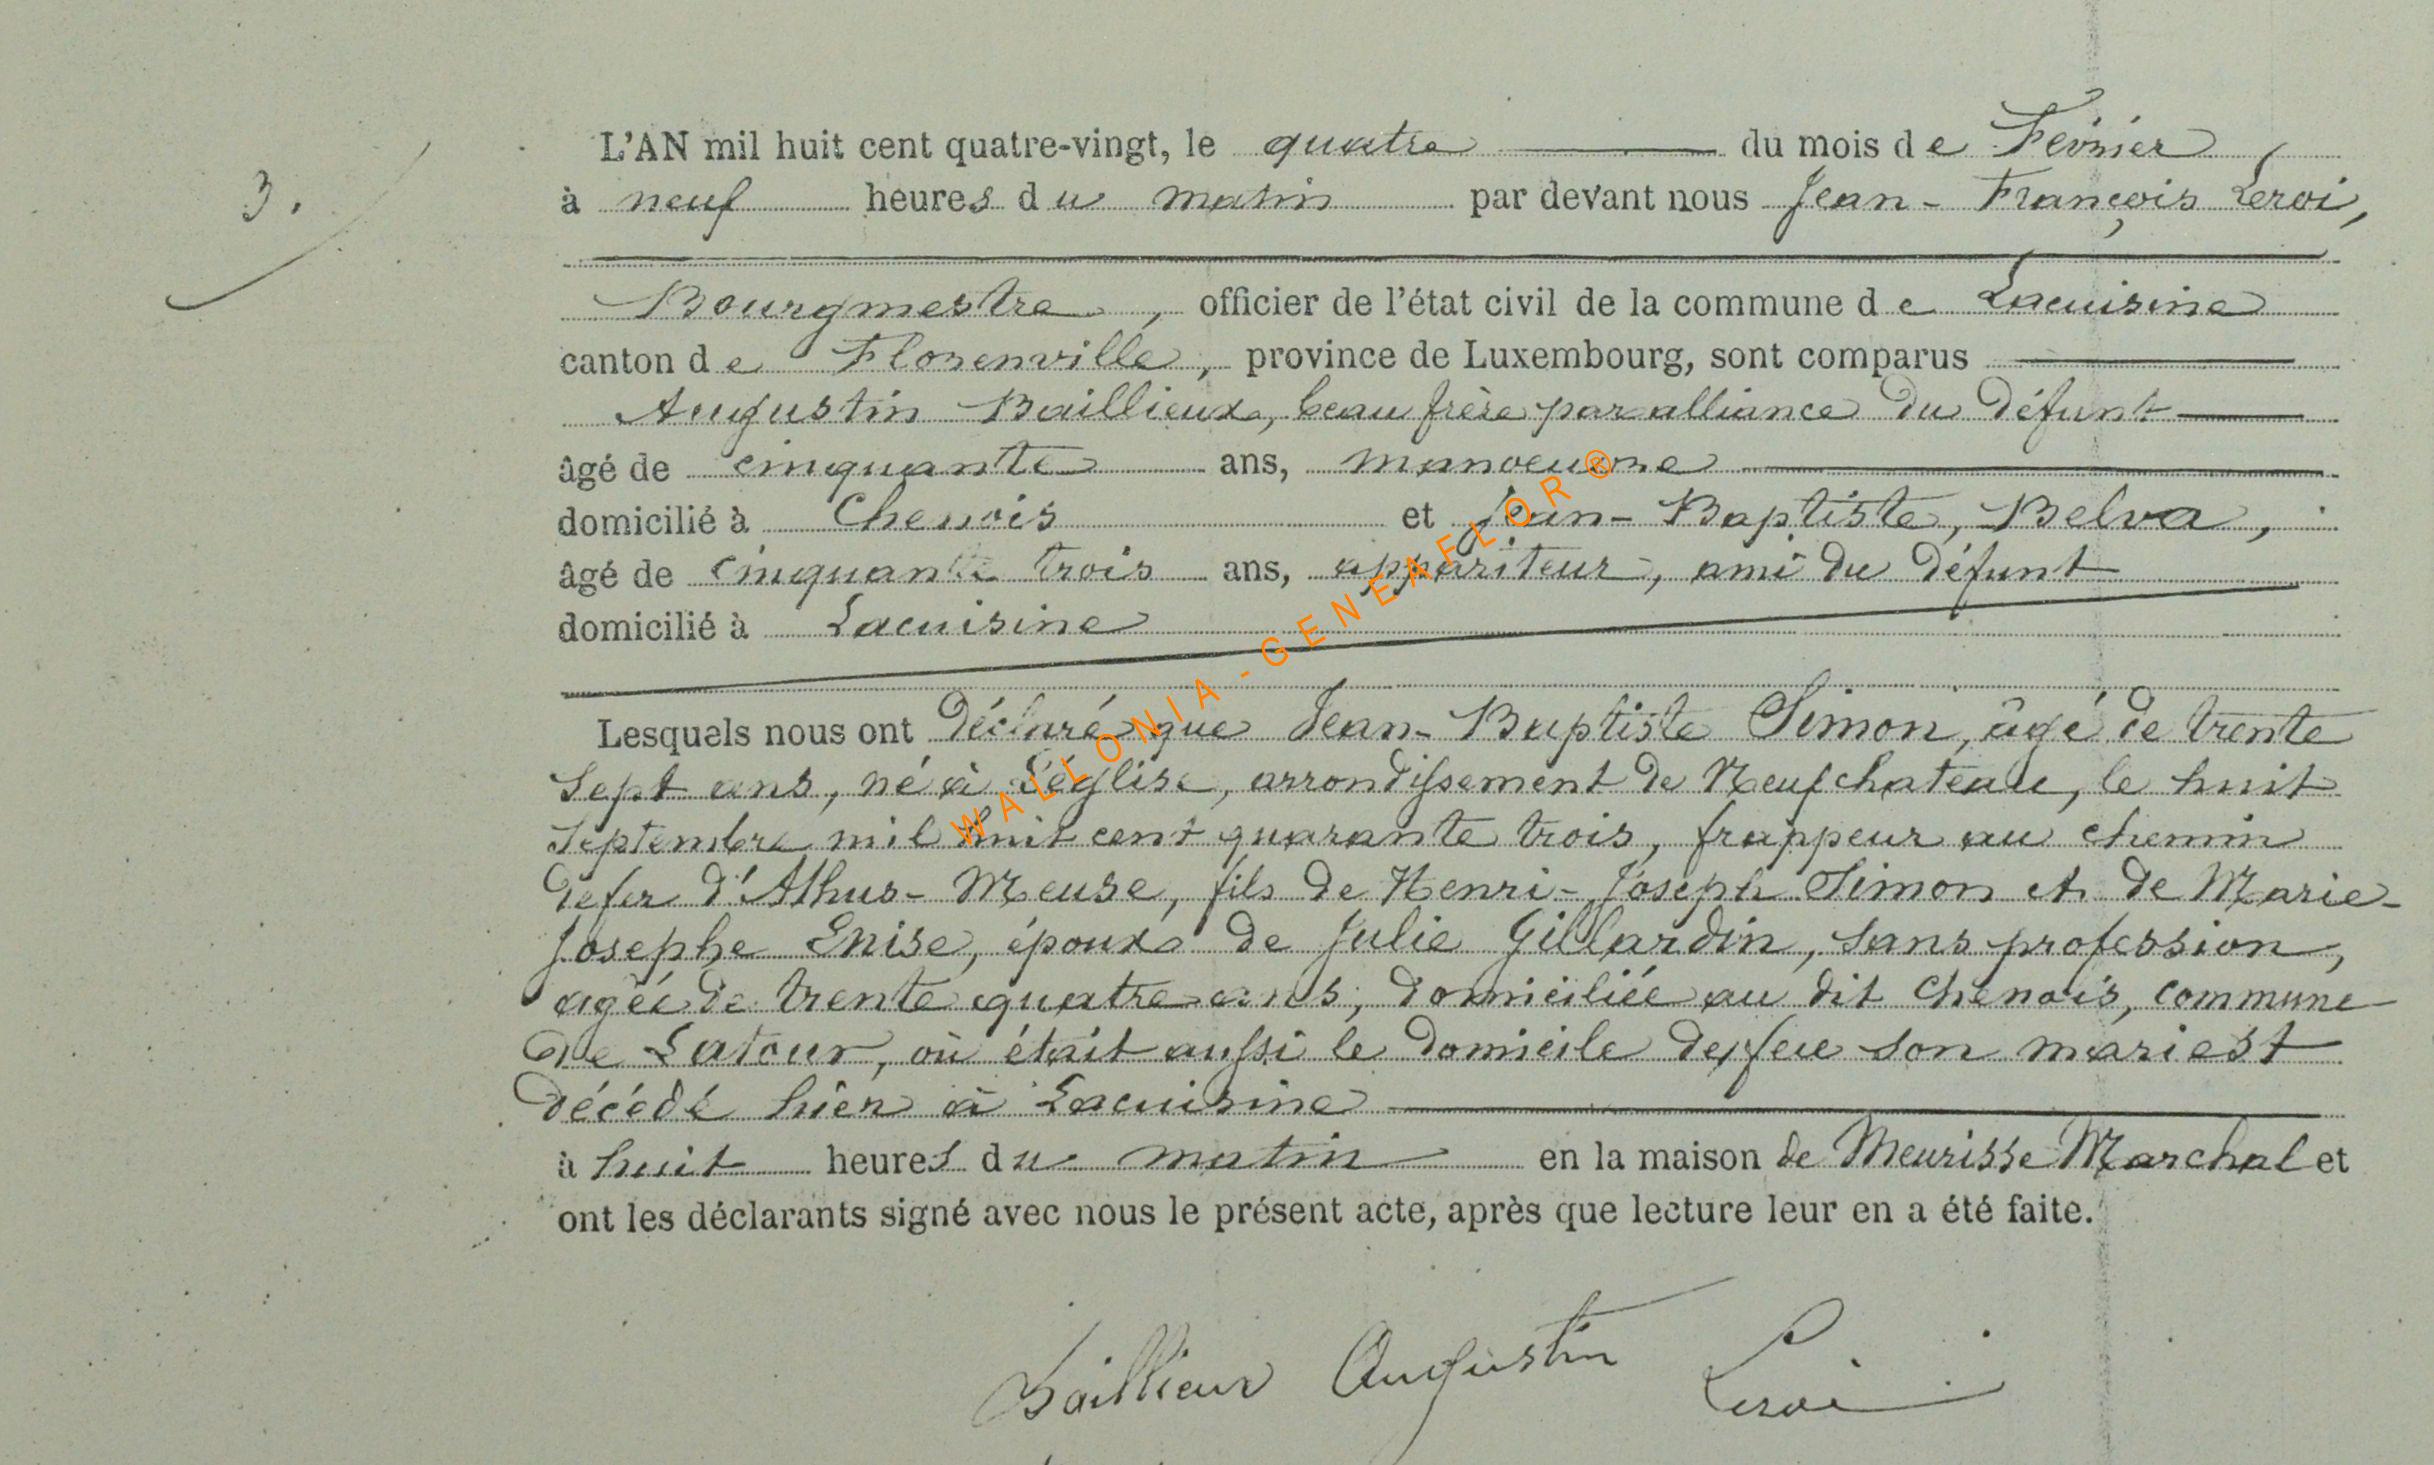 3.
L'AN mil huit cent quatre-vingt, le quatre du mois de Février
à neuf heures du matin par devant nous Jean-François Leroi,
Bourgmestre, officier de l'état civil de la commune de Lacuisine
canton de Florenville, province de Luxembourg, sont comparus
Augustin Baillieux, beau frère par alliance du défunt
âgé de cinquante ans, manoeuvre
domicilié à Chenois et Jean-Baptiste, Belva,
âgé de cinquante trois ans, appariteur, ami du défunt
domicilié à Lacuisine
Lesquels nous ont déclaré que Jean-Baptiste Simon, âgé de trente
sept ans, né à Léglise, arrondissement de Neufchateau, le huit
septembre mil huit cent quarante trois, frappeur au chemin
de fer d'Athus-Meuse, fils de Henri-Joseph Simon et de Marie-
Josephe Enise, époux de Julie Gillardin, sans profession,
agée de trente quatre ans, domiciliée au dit Chenois, commune
de Latour, où était aussi le domicile de feu son mari est
décédé hier à Lacuisine
à huit heures du matin en la maison de Meurisse Marchal et
ont les déclarants signé avec nous le présent acte, après que lecture leur en a été faite.
Baillieux Augustin Leroi
WALLONIA-GENEAFLOR®